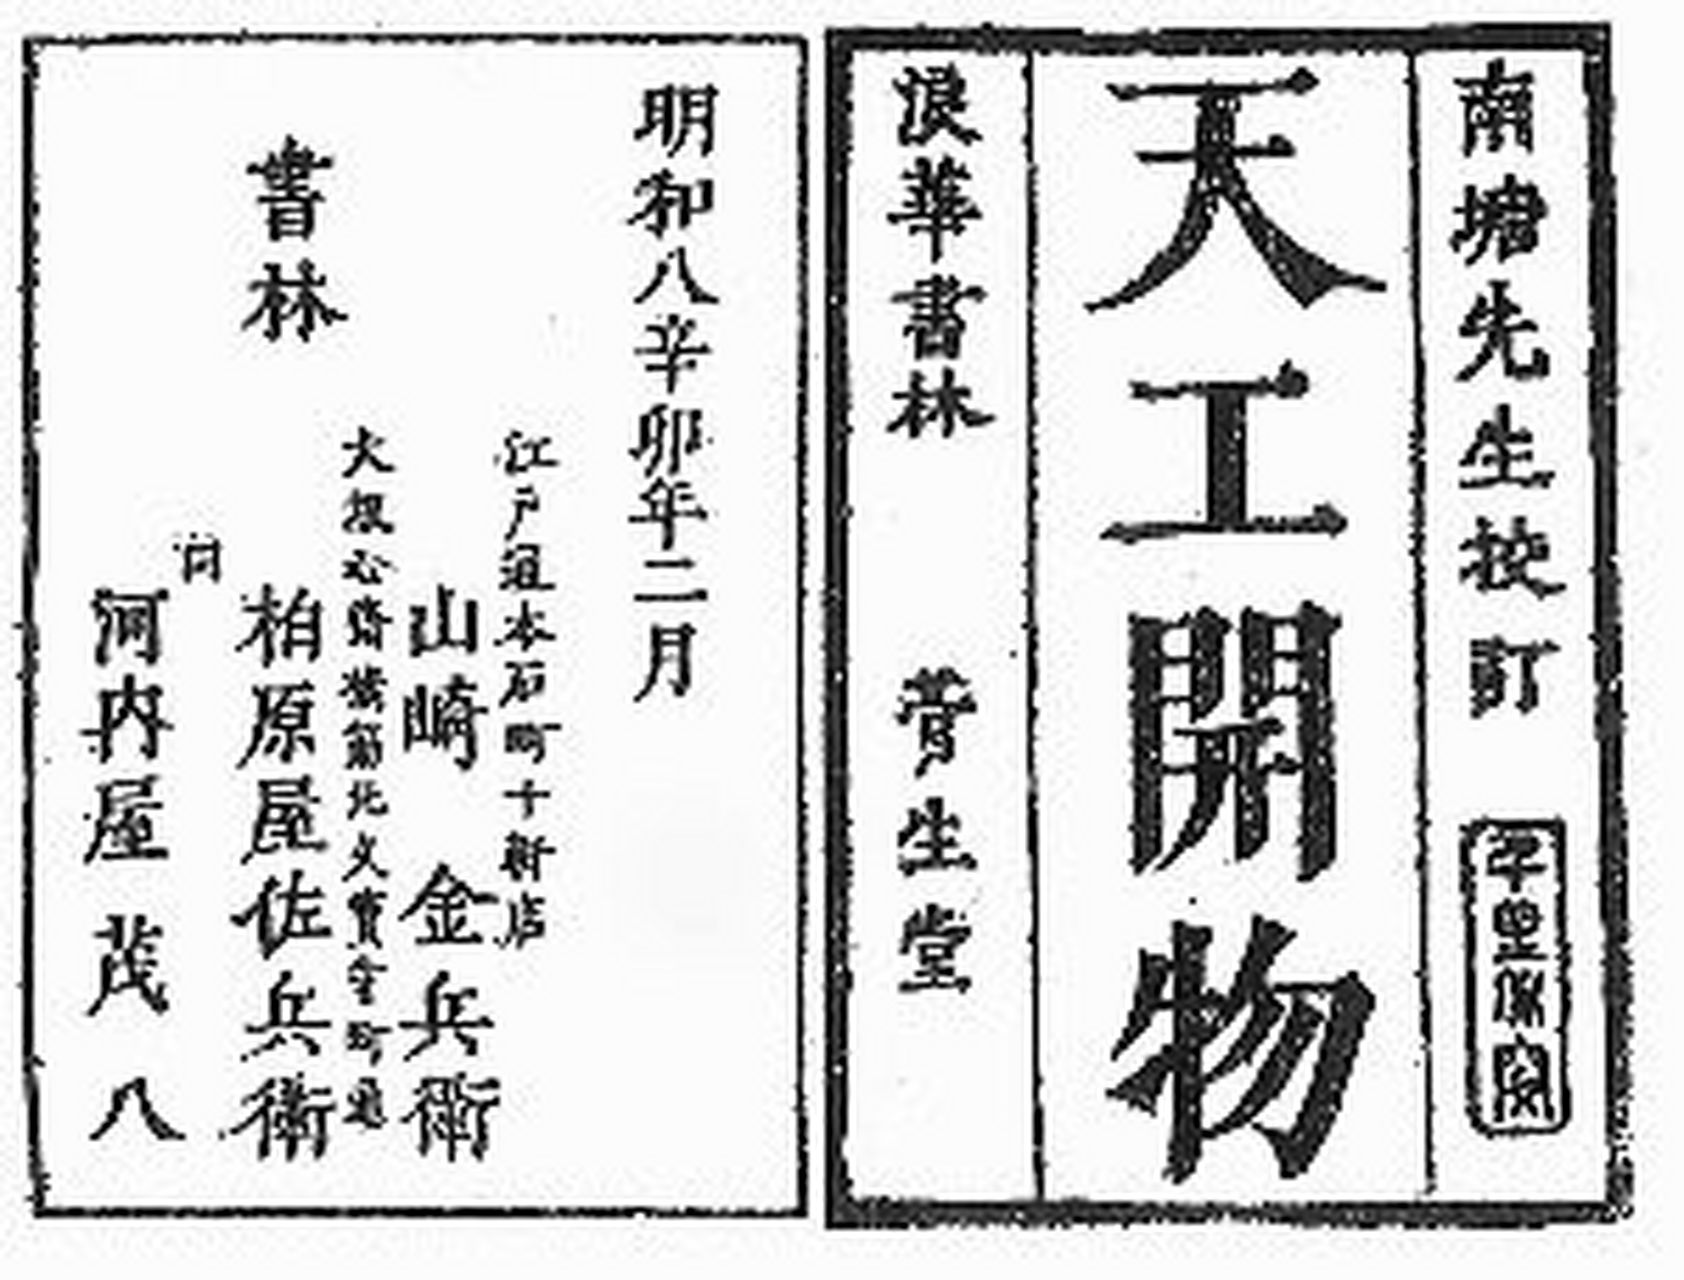 南塘先生校訂
天工開物
浪華書林 菅生堂
明和八辛卯年二月
江戸通本石町十軒店
山崎金兵衛
大坂心斎橋筋北久寶寺町通
柏原屋佐兵衛
同
河内屋茂八
書林